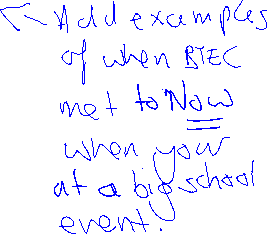 Add examples
of when BTEC
met to Now
when your
at a big school
event.